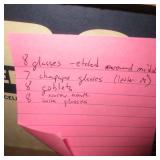 8 glasses - etched around middle
7 champagne glasses (
8 goblets
8 narrow mouth
8 wine glasses